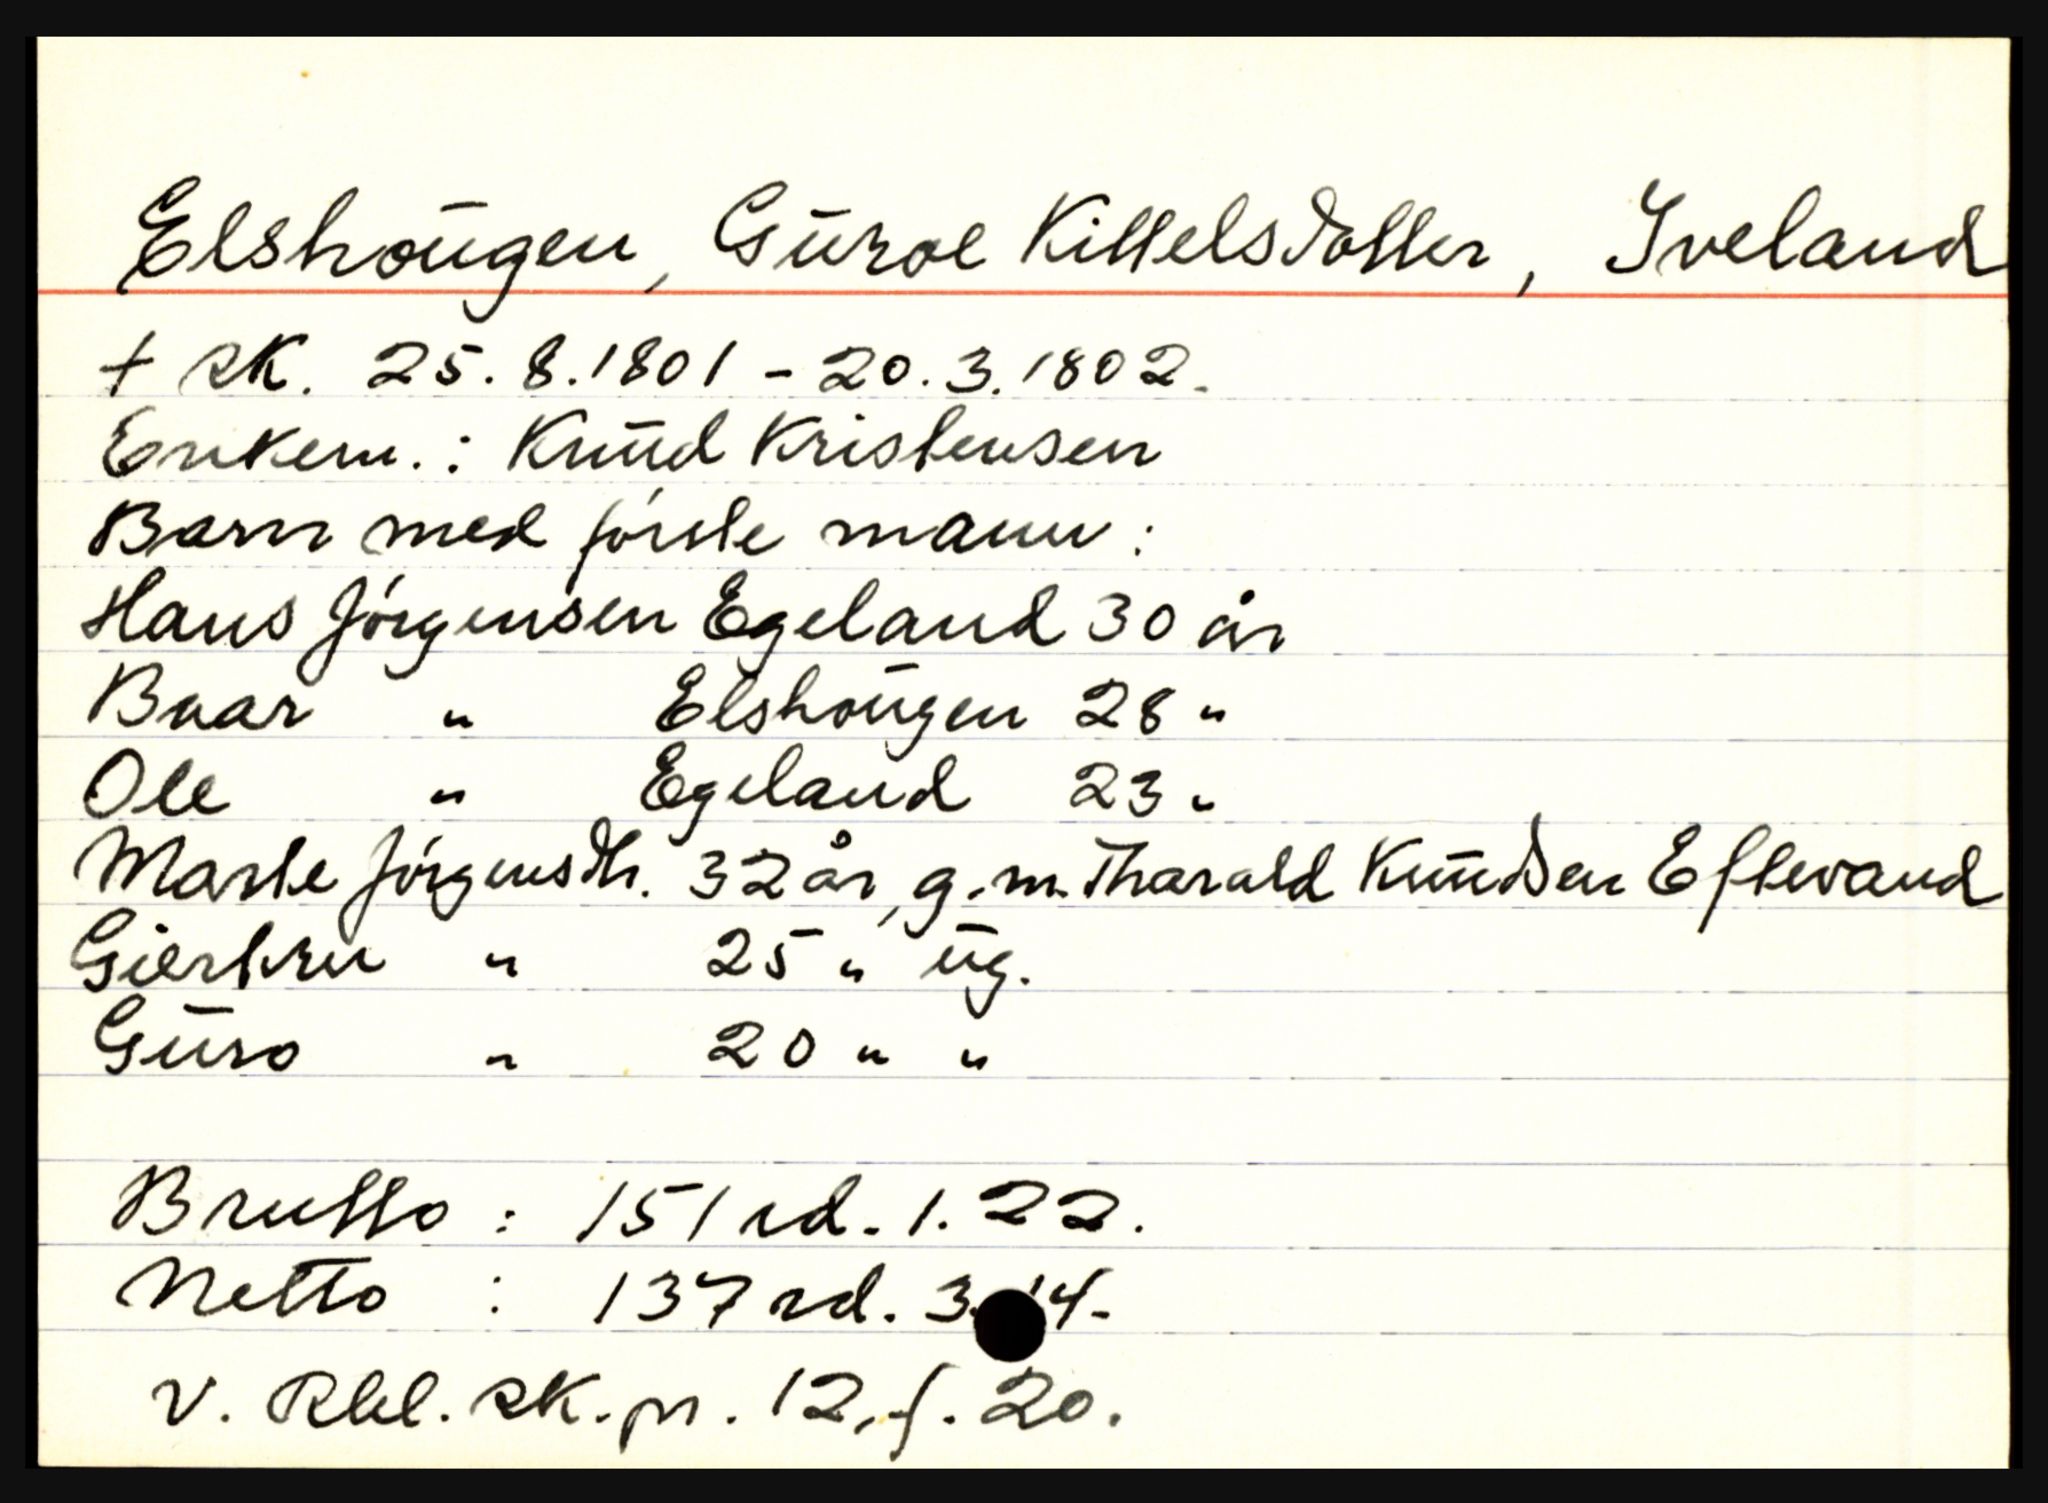 Elshougen, Guroe Kittelsdotter, Iveland
+ sk. 25.8.1801 - 20.3.1802.
Enkem.: Knud Kristensen
Barn med første mann:
Hans Jørgensen Egeland 30 år
Boar " Elshougen 28 "
Ole " Egeland 23 "
Marte Jørgensdtr. 32 år, g.m. Tharald Knudsen Eftevand
Giertru " 25 " ug.
Guro " 20 " "
Brutto : 151 rd. 1. 22.
Netto : 137 rd. 3. 14.
V. Rbl. sk. pr. 12, f. 20.